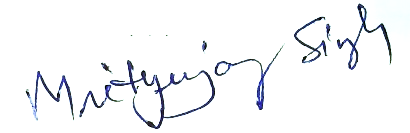 Mrityunjay Singh